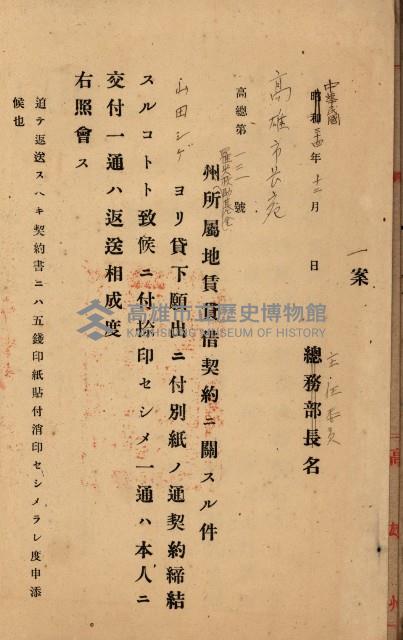 一案
主任委員
總務部長名
中華民國
昭和三十四年 十二月 日
高雄市長宛
高總第一二一號
州所屬地賃貸借契約ニ關スル件
山田シゲ ヨリ貸下願出ニ付別紙ノ通契約締結
スルコトト致候ニ付捺印セシメ一通ハ本人ニ
交付一通ハ返送相成度
右照會ス
追テ返送スヘキ契約書ニハ五錢印紙貼付消印セシメラレ度申添
候也
高雄州
高雄市立歷史博物館
KAOHSIUNG MUSEUM OF HISTORY